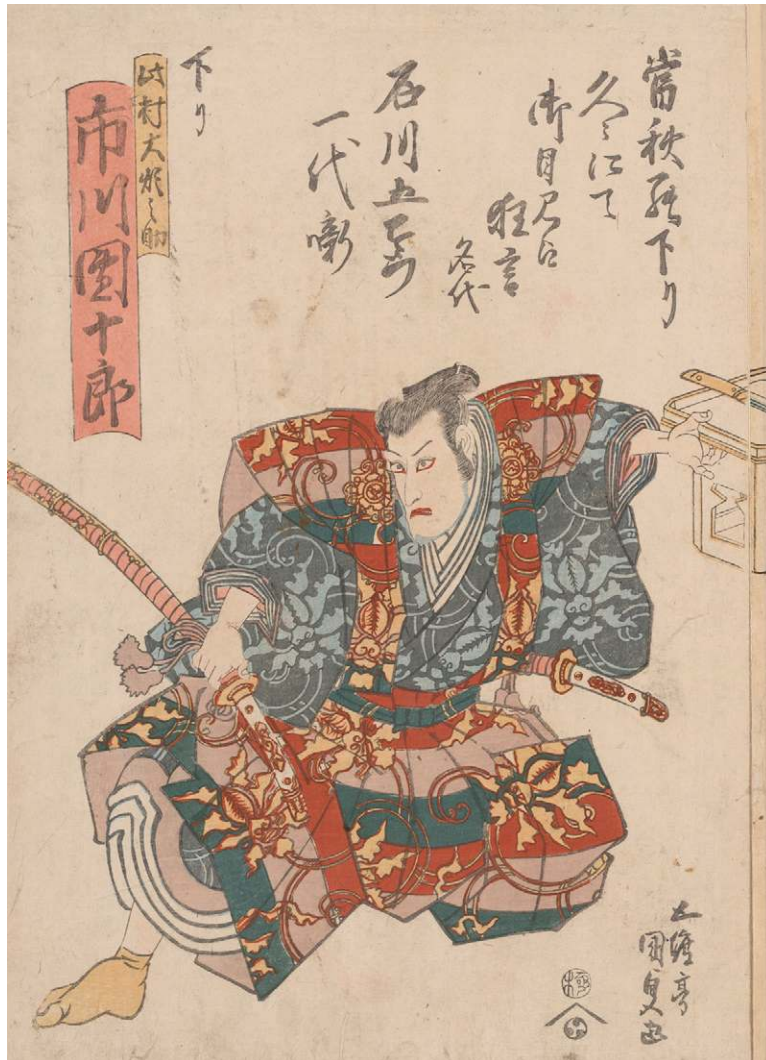 當秋罷下り
久々にて
御目見へ
狂言
名代
石川五右衛門
一代噺
下り
此村大炊之助
市川團十郎
五渡亭
國貞画
極